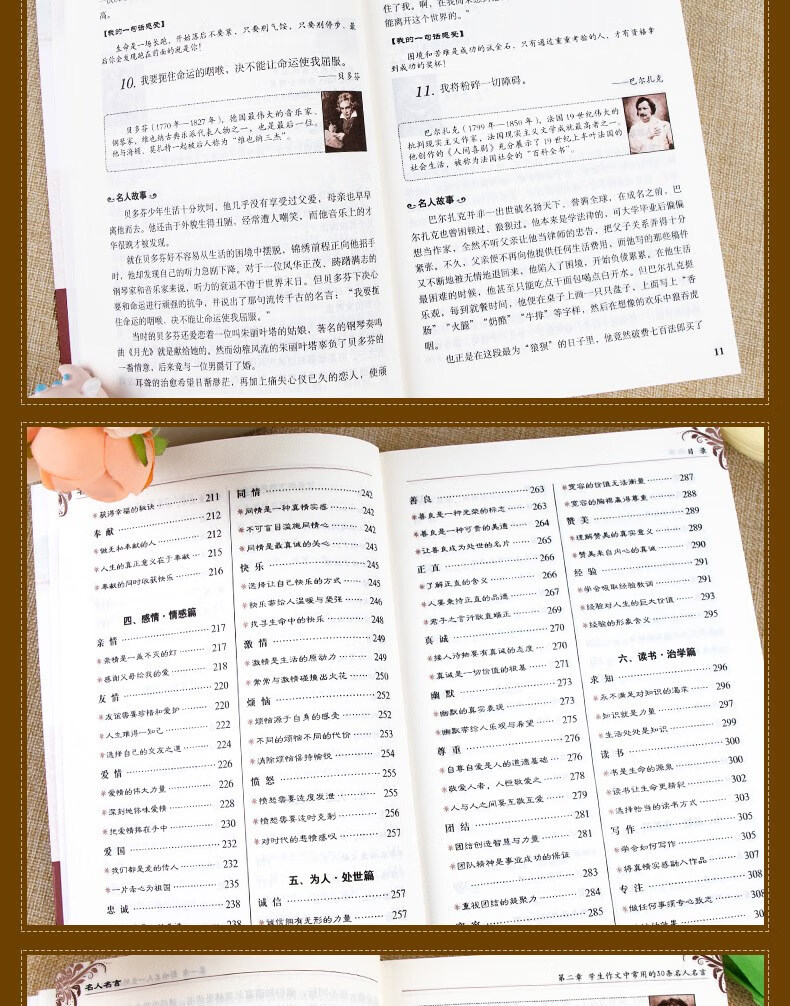 高。
【我的一句话感受】
生命是一场长跑，开始落后不要紧，只要别气馁，只要别停步、最
后你会发现跑在前面的就是你！
10. 我要扼住命运的咽喉，决不能让命运使我屈服。
——贝多芬
贝多芬（1770年—1827年），德国最伟大的音乐家、
钢琴家，维也纳古典乐派代表人物之一，也是最后一位。
他与海顿、莫扎特一起被后人称为“维也纳三杰”。
名人故事
贝多芬少年生活十分坎坷，他几乎没有享受过父爱，母亲也早早
离他而去。他还由于外貌生得丑陋，经常遭人嘲笑，而他音乐上的才
华很晚才被发现。
就在贝多芬好不容易从生活的困境中摆脱，锦绣前程正向他招手
时，他却发现自己的听力急剧下降。对于一位风华正茂、踌躇满志的
钢琴家和音乐家来说，听力的衰退不啻于世界末日。但贝多芬下决心
要和命运进行顽强的抗争，并说出了那句流传千古的名言：“我要扼
住命运的咽喉、决不能让命运使我屈服。”
当时的贝多芬还爱恋着一位叫朱丽叶塔的姑娘，著名的钢琴奏鸣
曲《月光》就是献给她的。然而幼稚风流的朱丽叶塔辜负了贝多芬的
一番情意，后来竟与一位男爵订了婚。
耳聋的治愈希望日渐渺茫，再加上痛失心仪已久的恋人，使顽
能离开这个世界的。”
【我的一句话感受】
困境和苦难是成功的试金石，只有通过重重考验的人，才有资格拿
到成功的奖杯！
11. 我将粉碎一切障碍。
——巴尔扎克
巴尔扎克（1799年—1850年），法国19世纪伟大的
批判现实主义作家，法国现实主义文学成就最高者之一。
他创作的《人间喜剧》充分展示了19世纪上半叶法国的
社会生活，被称为法国社会的“百科全书”。
名人故事
巴尔扎克并非一出世就名扬天下、誉满全球，在成名之前，巴
尔扎克也曾困顿过、狼狈过。他本来是学法律的，可大学毕业后偏偏
想当作家，全然不听父亲让他当律师的忠告，把父子关系弄得十分
紧张。不久，父亲便不再向他提供任何生活费用，而他写的那些稿件
又不断地被无情地退回来，他陷入了困境，开始负债累累。在他生活
最困难的时候，他甚至只能吃点干面包喝点白开水。但巴尔扎克挺
乐观，每到就餐时间，他便在桌子上画一只只盘子，上面写上“香
肠”“火腿”“奶酪”“牛排”等字样，然后在想像的欢乐中狼吞虎
咽。
也正是在这段最为“狼狈”的日子里，他竟然破费七百法郎买了
11
获得幸福的秘诀 211
奉献 212
做无私奉献的人 212
人生的真正意义在于奉献 215
奉献的同时收获快乐 216
四、感情·情感篇
亲情 217
亲情是一盏不灭的灯 217
感谢父母给我的爱 218
友情 220
友谊需要珍惜和爱护 220
人生难得一知己 222
选择自己的交友之道 224
爱情 226
爱情的伟大力量 226
深刻地体味爱情 228
把爱情握在手中 230
爱国 232
我们都是龙的传人 232
一片赤心为祖国 235
忠诚 238
238
同情 242
同情是一种真情实感 242
不可盲目滥施同情心 242
同情是最真诚的关心 243
快乐 245
选择让自己快乐的方式 245
快乐带给人温暖与坚强 246
找寻生命中的快乐 248
激情 249
激情是生活的原动力 249
常常与激情碰撞出火花 250
烦恼 252
烦恼源于自身的感受 252
不同的烦恼不同的代价 253
消除烦恼保持愉悦 254
愤怒 255
愤怒需要适度发泄 255
愤怒需要适时克制 256
对时代的悲愤感叹 257
五、为人·处世篇
诚信 257
诚信拥有无形的力量 257
目录
善良 263
善良是一种光荣的标志 263
善良是一种可贵的美德 264
让善良成为处世的名片 265
正直 266
了解正直的含义 266
人要秉持正直的品德 267
君子之言行耿直端正 269
真诚 270
缘人诗轴要有真诚的态度 270
真诚是一切价值的根基 271
幽默 273
幽默的真实表现 273
幽默带给人乐观与希望 275
尊重 276
自尊自爱是人的道德基础 276
敬爱人者，人恒敬爱之 278
人与人之间要互敬互爱 279
团结 281
团结创造智慧与力量 281
团队精神是事业成功的保证
283
重视团结的凝聚力 284
285
宽容的价值无法衡量 287
宽容的胸襟赢得尊重 288
赞美 289
理解赞美的真实意义 289
赞美来自内心的真诚 290
经验 291
学会吸取经验教训 291
经验对人生的巨大价值 293
经验的形象含义 295
六、读书·治学篇
求知 296
永不满足对知识的渴求 296
知识就是力量 297
生活处处是知识 299
读书 300
书是生命的源泉 300
读书让生命更精彩 302
选择恰当的读书方式 303
写作 305
学会如何写作 305
将真情实感融入作品 307
专注 308
做任何事须专心致志 308
名人名言
第二章 学生作文中常用的50条名人名言